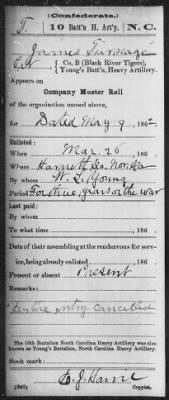 (Confederate.)
T. 10 Batt'n H. Art'y. N.C.
James Turnage
Co. B (Black River Tigers),
Young's Batt'n, Heavy Artillery.
Appears on
Company Muster Roll
of the organization named above,
for Dated May 9, 1862
Enlisted:
When Mar. 26, 186
Where Harnett Co. No. Ca
By whom W. L. Young
Period For three years or the war
Last paid:
By whom
To what time , 186 .
Date of their assembling at the rendezvous for service, being already enlisted , 186 .
Present or absent Present
Remarks:
entire entry cancelled
The 10th Battalion North Carolina Heavy Artillery was also known as Young's Battalion, North Carolina Heavy Artillery.
Book mark:
(642) Copyist.